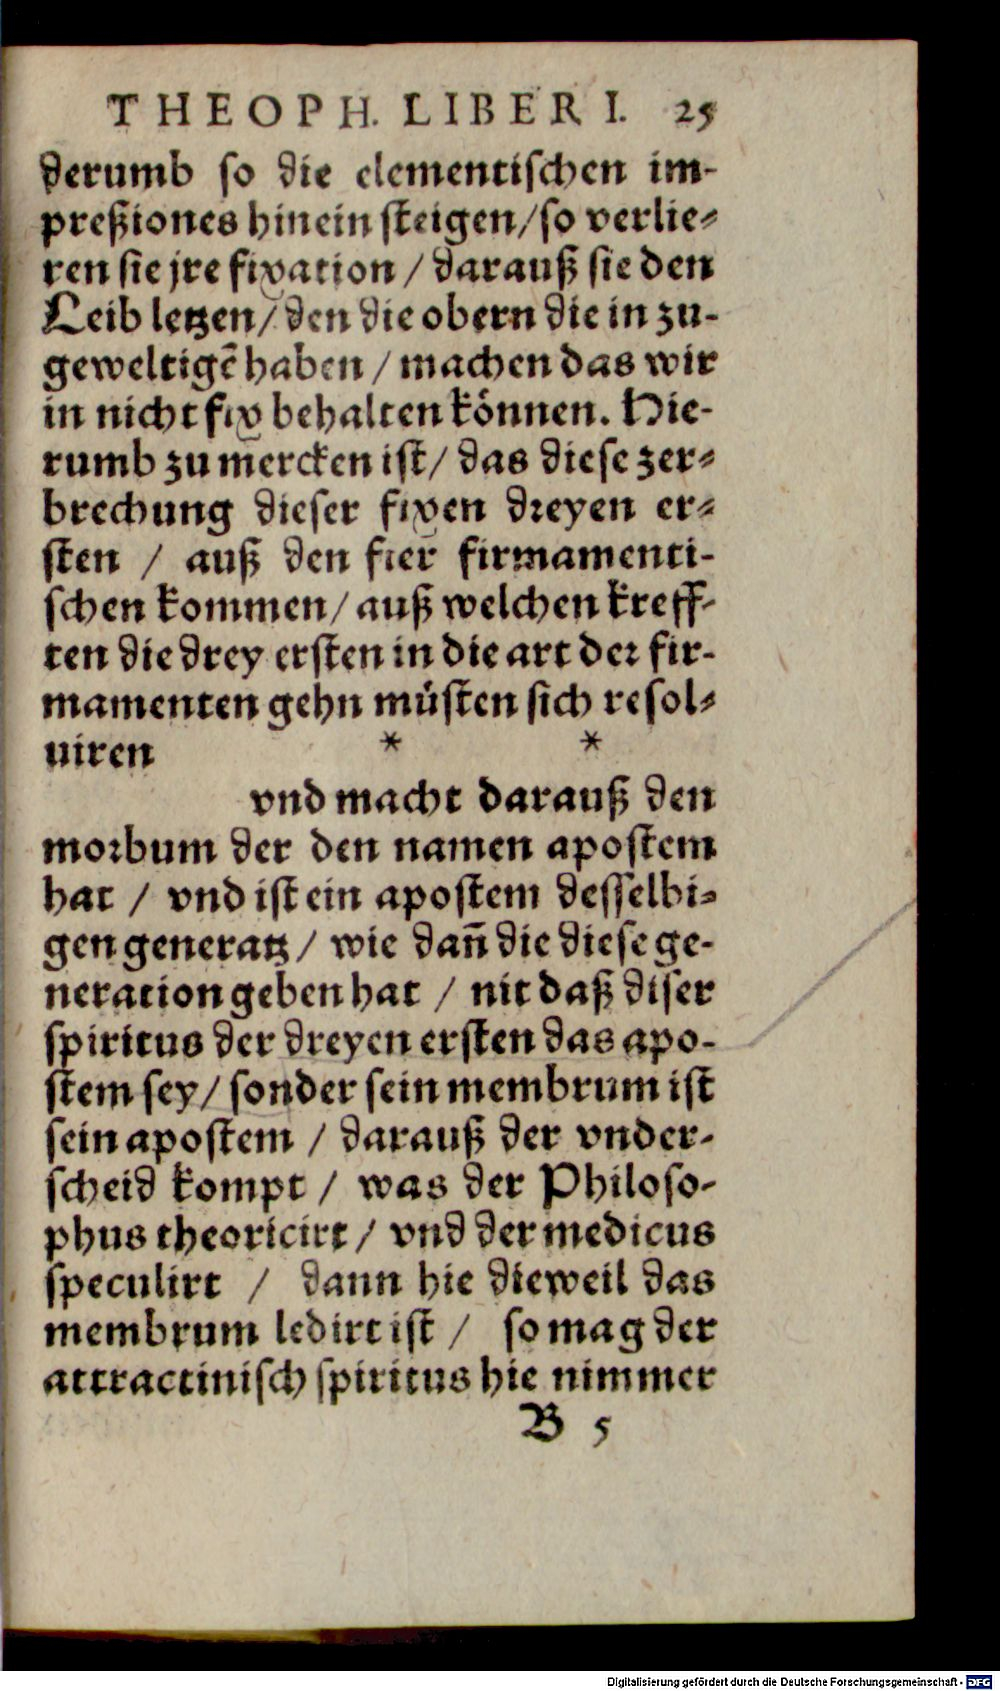 THEOPH. LIBER I. 25
derumb so die elementischen im-
preßiones hinein steigen/so verlie-
ren sie jre fixation / darauß sie den
Leib letzen/ den die obern die in zu-
geweltigẽ haben / machen das wir
in nicht fix behalten können. Hie-
rumb zu mercken ist/ das diese zer-
brechung dieser fixen dreyen er-
sten / auß den fier firmamenti-
schen kommen/ auß welchen kreff-
ten die drey ersten in die art der fir-
mamenten gehn müsten sich resol-
uiren * *
vnd macht darauß den
morbum der den namen apostem
hat / vnd ist ein apostem desselbi-
gen generatz/ wie dañ die diese ge-
neration geben hat / nit daß diser
spiritus der dreyen ersten das apo-
stem sey/ sonder sein membrum ist
sein apostem / darauß der vnder-
scheid kompt / was der Philoso-
phus theoricirt/ vnd der medicus
speculirt / dann hie dieweil das
membrum ledirt ist / so mag der
attractinisch spiritus hie nimmer
B 5
Digitalisierung gefördert durch die Deutsche Forschungsgemeinschaft - DFG